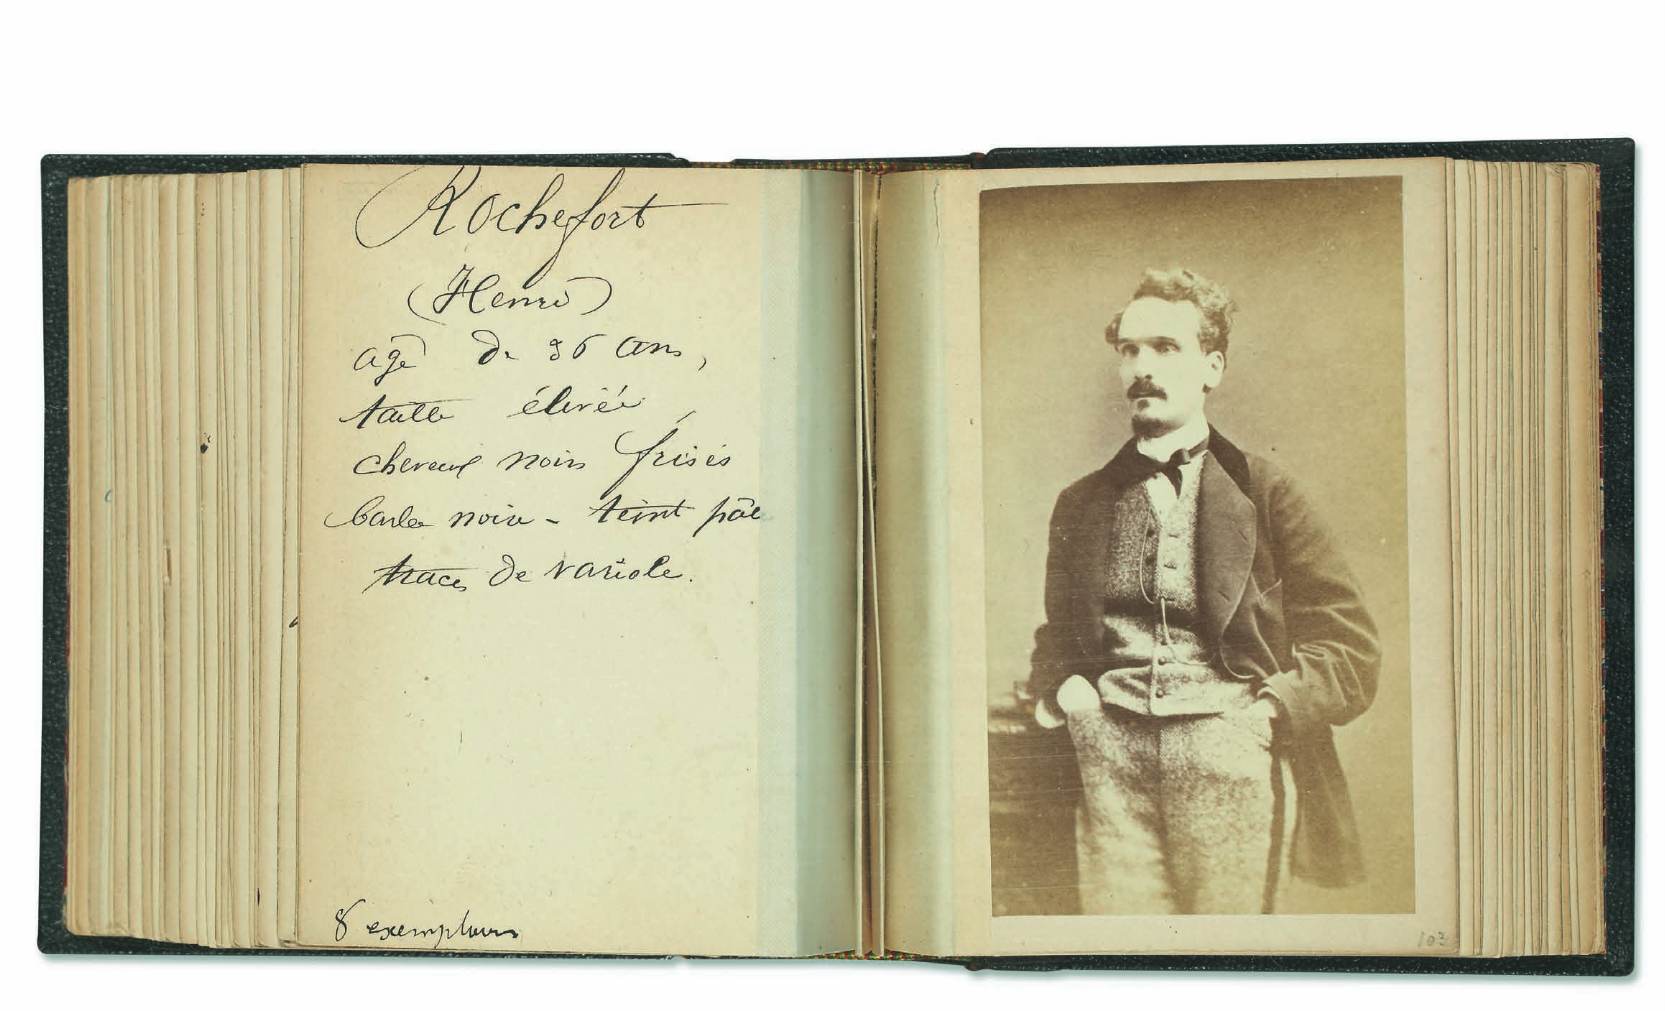 Rochefort
(Henri)
agé de 36 ans,
taille élevée,
cheveux noirs frisés
barbe noire - teint pâle
traces de variole.
8 exemplaires
103